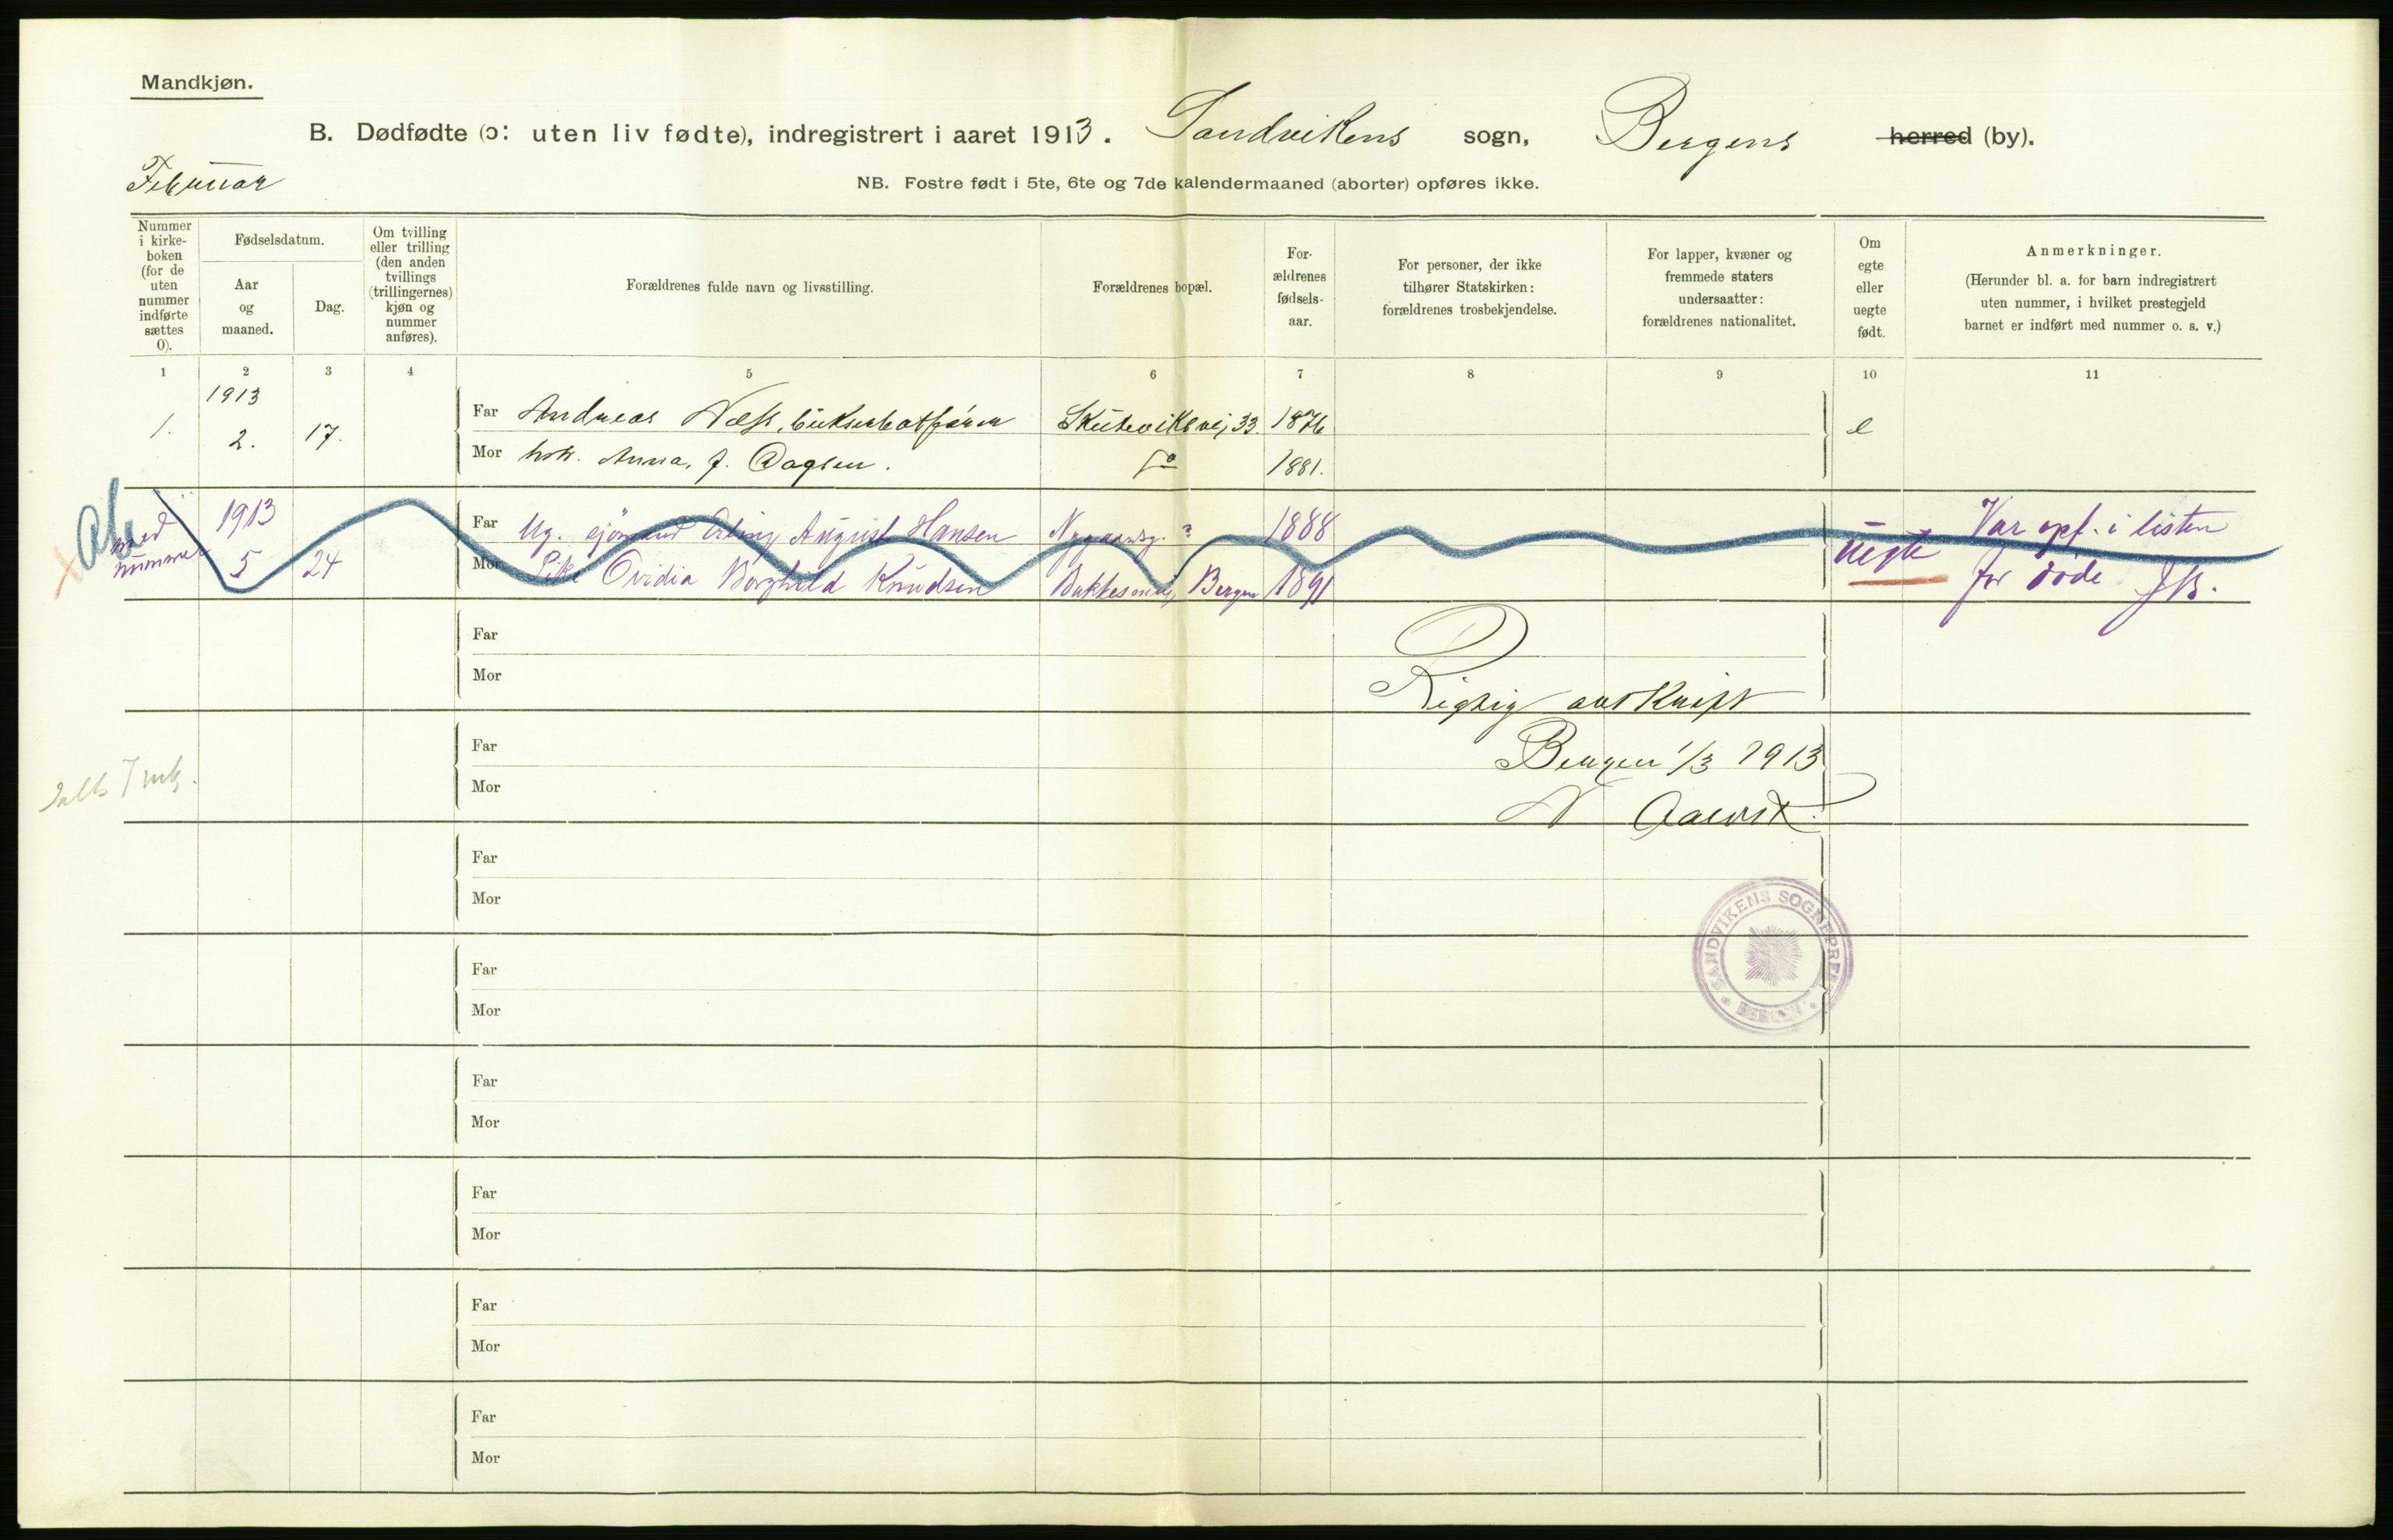 Mandkjøn.
B. Dødfødte (ɔ: uten liv fødte), indregistrert i aaret 1913. Sandvikens sogn, Bergens herred (by).
Februar
NB. Fostre født i 5te, 6te og 7de kalendermaaned (aborter) opføres ikke.
Nummer
i kirke-
boken
(for de
uten
nummer
indførte
sættes
0).
Fødselsdatum.
Aar
og
maaned.
Dag.
Om tvilling
eller trilling
(den anden
tvillings
(trillingernes)
kjøn og
nummer
anføres).
Forældrenes fulde navn og livsstilling.
Forældrenes bopæl.
For-
ældrenes
fødsels-
aar.
For personer, der ikke
tilhører Statskirken:
forældrenes trosbekjendelse.
For lapper, kvæner og
fremmede staters
undersaatter:
forældrenes nationalitet.
Om
egte
eller
uegte
født.
Anmerkninger.
(Herunder bl. a. for barn indregistrert
uten nummer, i hvilket prestegjeld
barnet er indført med nummer o. s. v.)
1 2 3 4 5 6 7 8 9 10 11
1913
1. 2. 17. Far Andreas Næss, Skuteviksvei 33 1876 e
Mor hstr. Anna, f. Dagsen. do 1881.
med
nummer
1913
5 24
Far Ug. sjömand Erling August Hansen Nygaardsg. ? 1888
Mor Pike Ovidia Borghild Knudsen Bergen 1891
uegte
Var opf. i listen
for döde JB.
Far
Mor
Rigtig avskrift
Far
Bergen 1/3 1913
Mor
Far
Mor
SANDVIKENS SOGNEPREST
BERGEN
Far
Mor
Far
Mor
Far
Mor
Far
Mor
Far
Mor